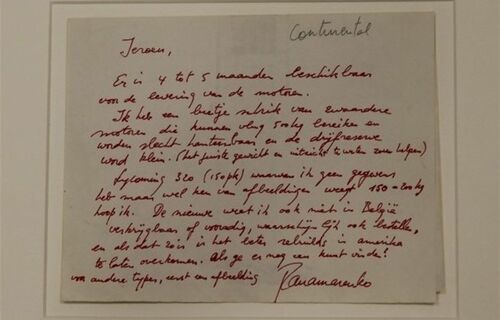 Continental
Jeroen,
Er is 4 tot 5 maanden beschikbaar
voor de levering van de motoren.
Ik heb een beetje schrik van zwaardere
motoren die kunnen vlug 500kg bereiken en
worden slecht hanteerbaar en de drijfreserve
word klein. (het juiste gewicht en te weten zou helpen)
Lycoming 320 (150pk) waarvan ik geen gegevens
heb maar wel afbeeldingen weegt 150-200kg
hoop ik. De nieuwe weet ik ook niet in België
verkrijgbaar of voorradig, waarschijnlijk ook bestellen,
en als dat zo is is het beter in amerika
te laten overkomen. Als ge er nog een kunt vinden?
voor andere types, eerst een afbeelding Panamarenko